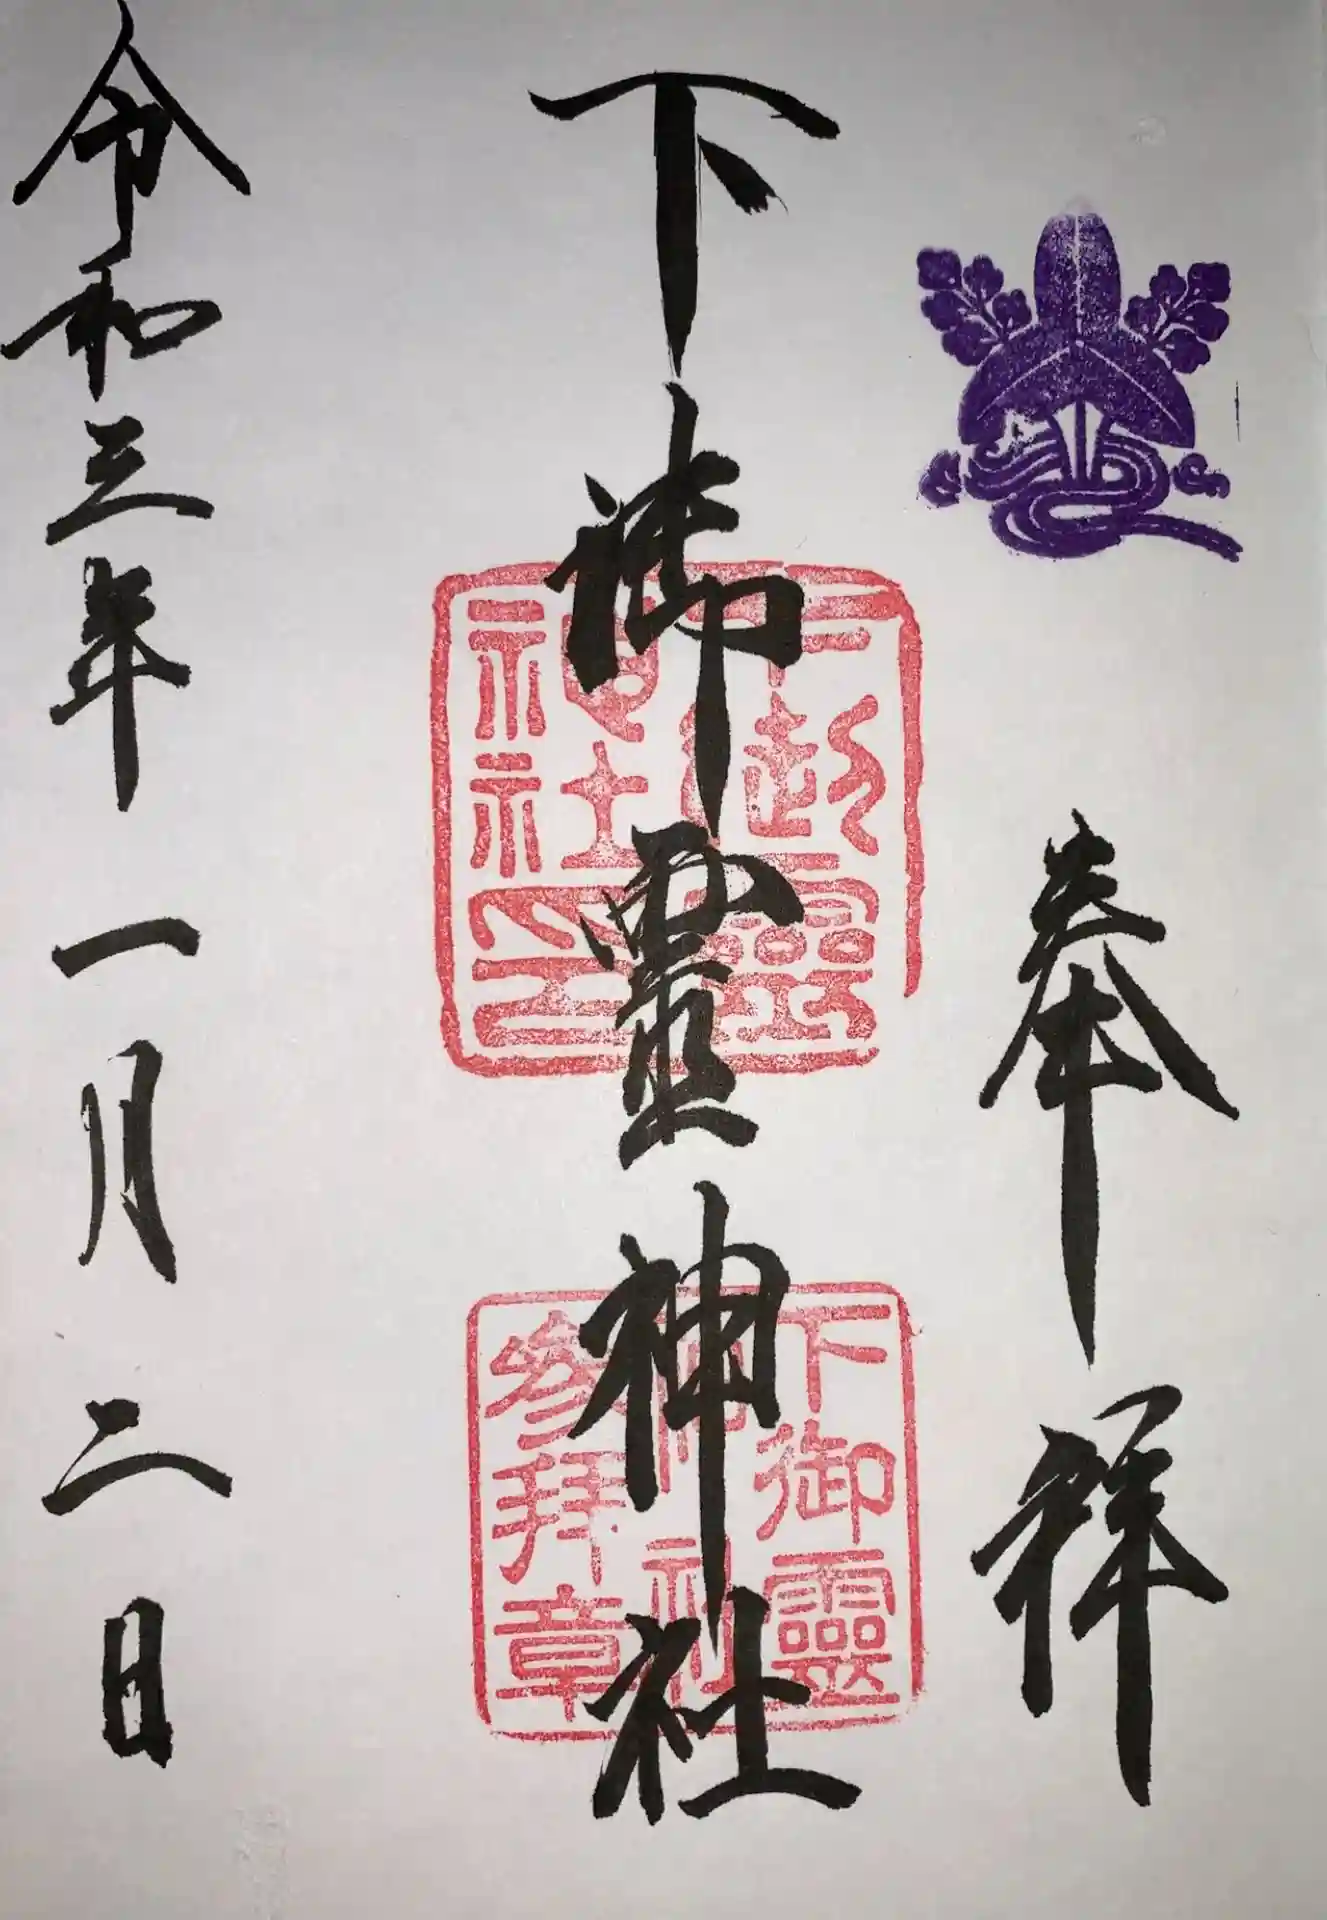 奉拝
下御靈神社
下御靈神社之印
下御靈
神社
参拝章
令和三年一月二日